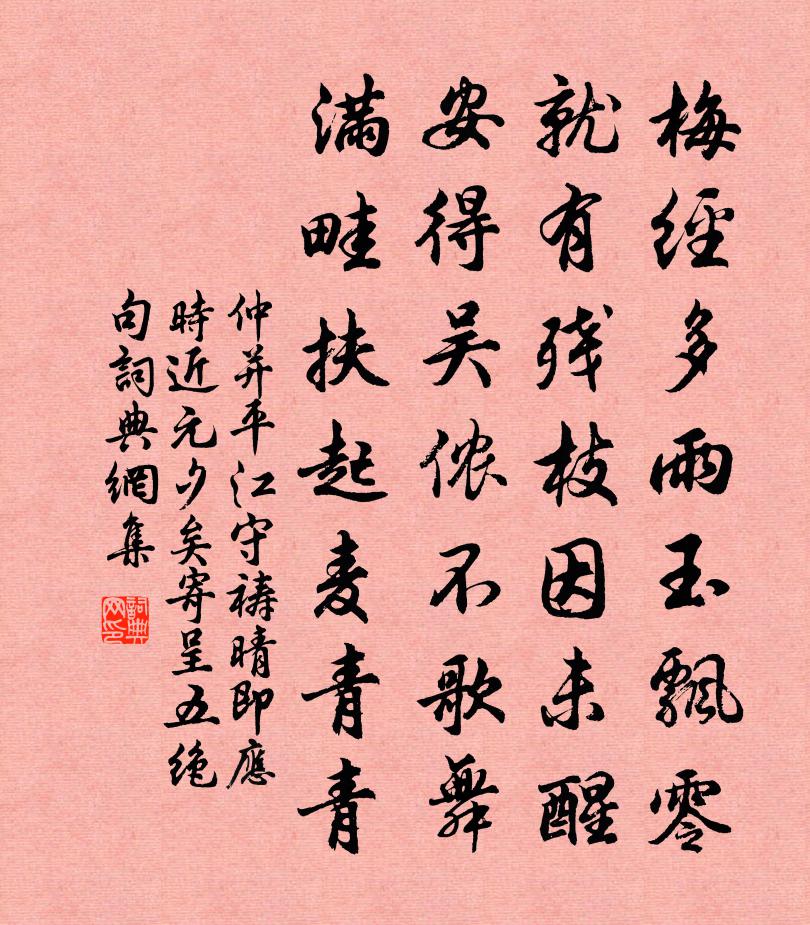 梅經多雨玉飄零
就有残枝因未醒
安得吴侬不歌舞
满畦扶起麦青青
仲并平江守禱晴即應
時近元夕矣寄呈五绝
句詞典網集
詞典网印